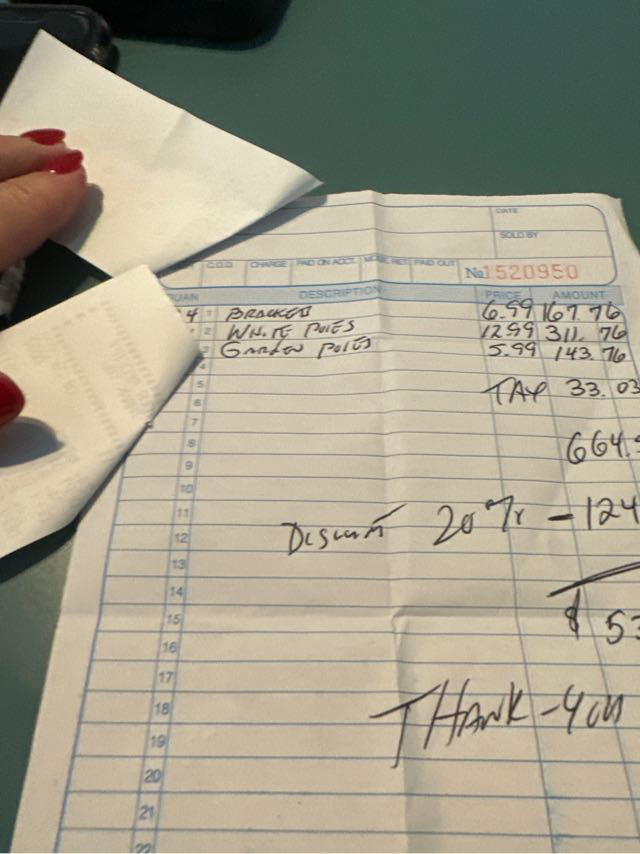 DATE
SOLD BY
C.O.D. CHARGE PAID ON ACCT. MDSE. RET. PAID OUT
No 1520950
QUAN DESCRIPTION PRICE AMOUNT
4 1 BRACKETS 6.99 167.76
2 WHITE POLES 12.99 311.76
3 GARDEN POLES 5.99 143.76
4
5 TAX 33.03
6
7
8 664.
9
10
11
12 Discount 20% - 124
13
14
15 $ 53
16
17
18 THANK-YOU
19
20
21
22